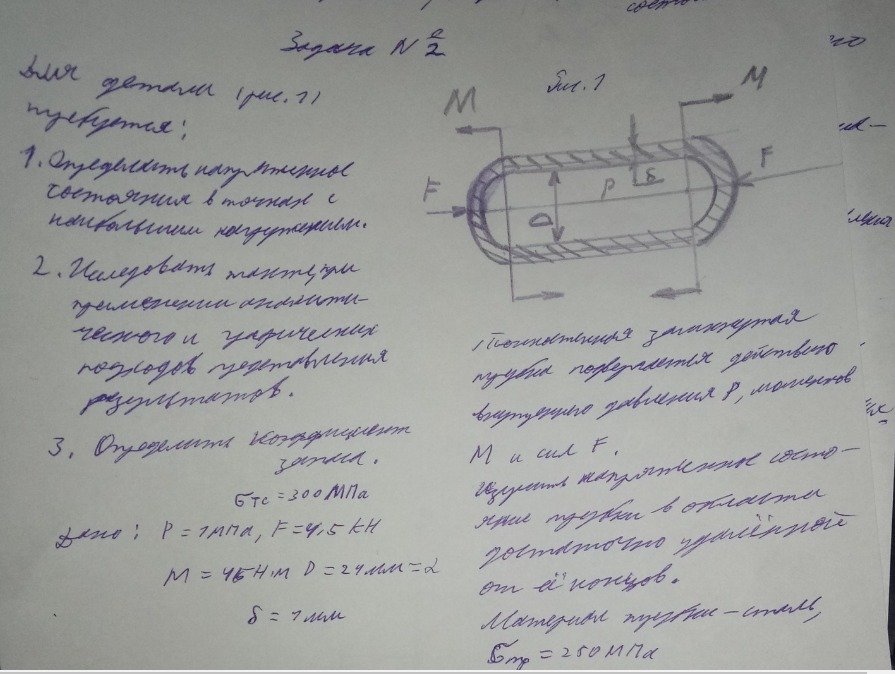 Задача № 2
Для детали (рис. 1)
требуется:
1. Определить напряженное
состояния в точках с
наибольшим нагружением.
2. Исследовать при
применении аналити-
ческого и графических
подходов представления
результатов.
3. Определить коэффициент
запаса.
σтс = 300 МПа
Дано: P = 1 МПа, F = 4,5 кН
M = 45 Н·м D = 24 мм = d
δ = 1 мм
Рис. 1
M
M
F
F
P
δ
D
Тонкостенная замкнутая
трубка подвергается действию
внутреннего давления P, моментов
M и сил F.
напряженное состо-
яние трубки в области
достаточно удалённой
от её концов.
Материал трубки – сталь,
σтр = 250 МПа